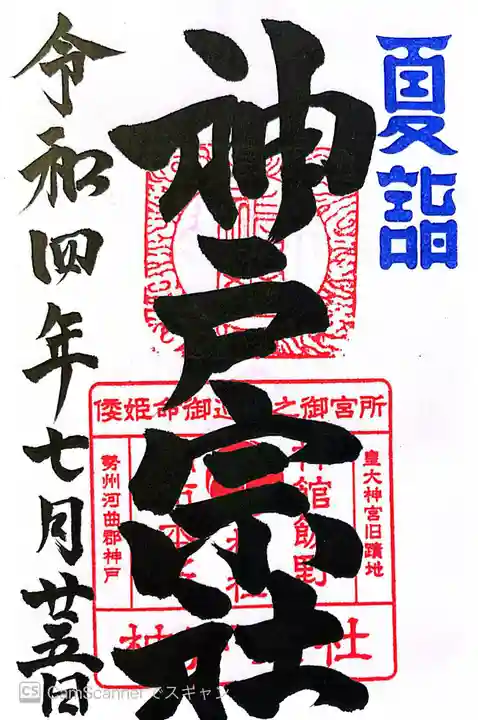 夏詣
神戸宗社
令和四年七月廿五日
倭姫命御之御宮所
皇大神宮旧蹟地
館飯野
勢州河曲郡神戸
社
CS CamScanner でスキャン